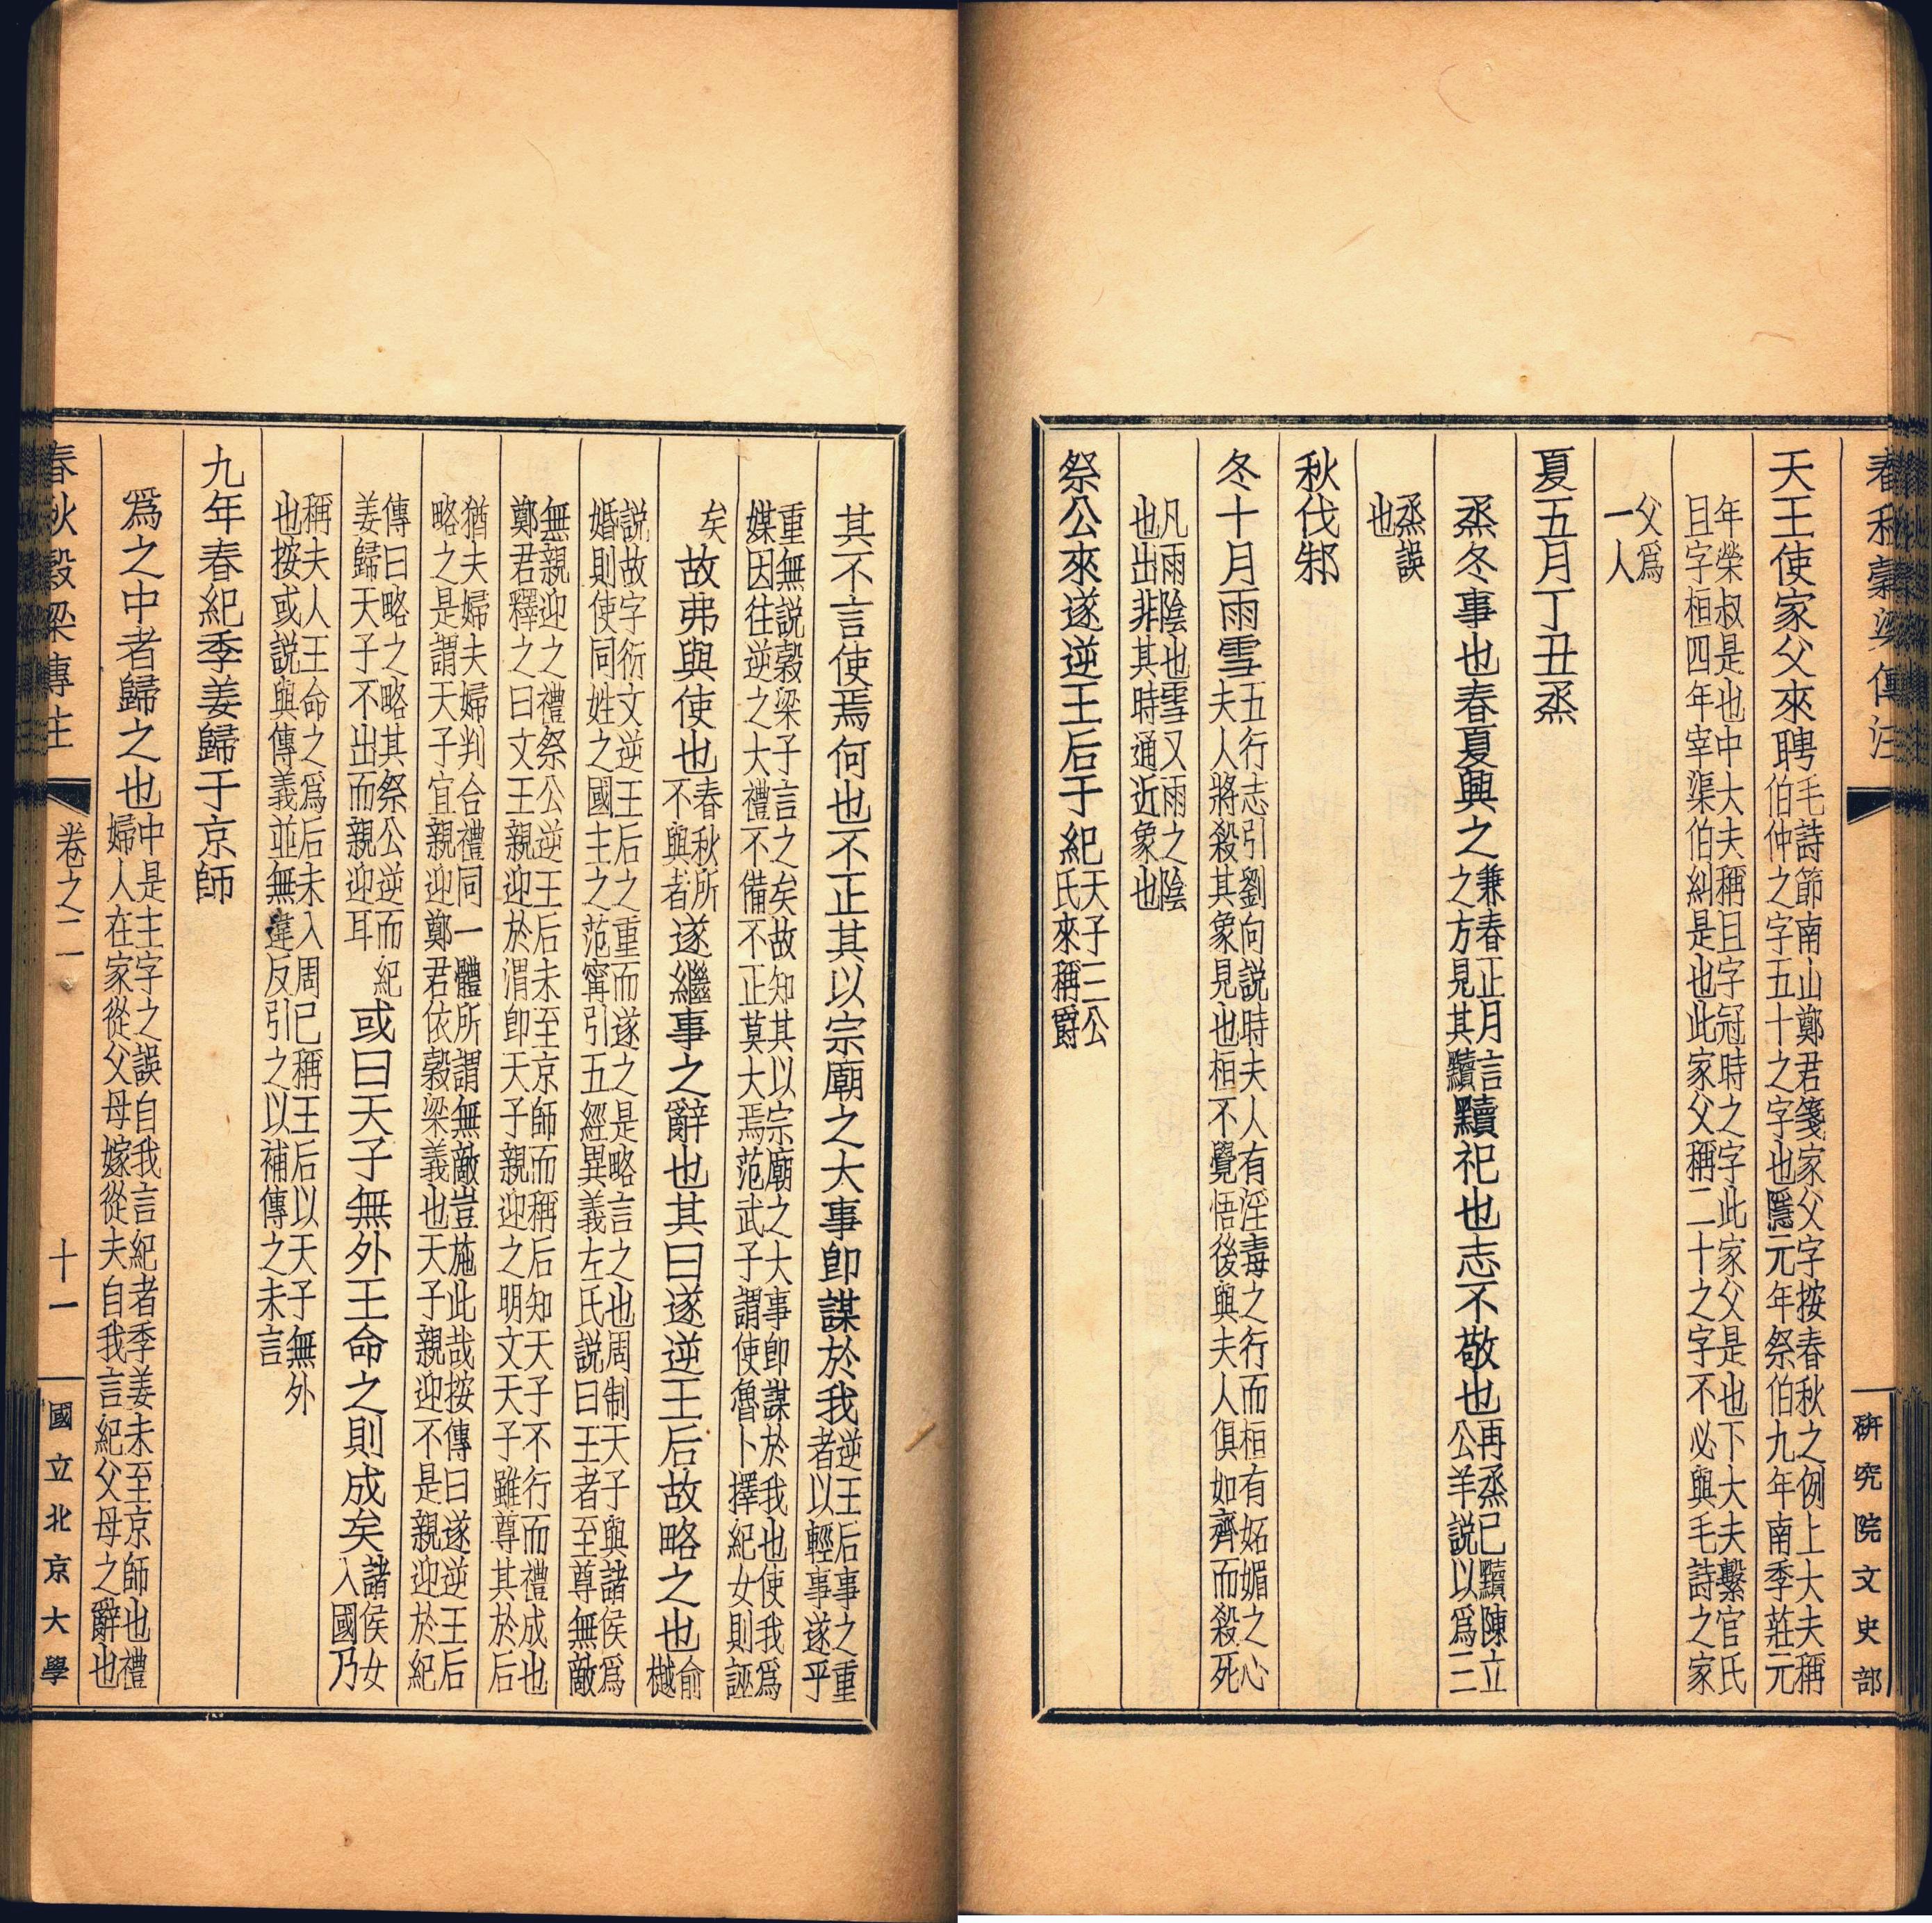 春秋穀梁傳注
研究院文史部
天王使家父來聘毛詩節南山鄭君箋家父字按春秋之例上大夫稱伯仲之字五十之字也隱元年祭伯九年南季莊元
年榮叔是也中大夫稱且字冠時之字此家父是也下大夫繫官氏且字桓四年宰渠伯糾是也此家父稱二十之字不必與毛詩之家
父爲一人
夏五月丁丑烝
烝冬事也春夏興之兼春正月言之方見其黷黷祀也志不敬也再烝已黷陳立公羊說以爲二
烝誤也
秋伐邾
冬十月雨雪五行志引劉向説時夫人有淫毒之行而桓有妬媚之心夫人將殺其象見也桓不覺悟後與夫人俱如齊而殺死
凡雨陰也雪又雨之陰也出非其時通近象也
祭公來遂逆王后于紀天子三公氏來稱爵
其不言使焉何也不正其以宗廟之大事卽謀於我逆王后事之重者以輕事遂乎
重無説穀梁子言之矣故知其以宗廟之大事卽謀於我也使我爲媒因往逆之大禮不備不正莫大焉范武子謂使魯卜擇紀女則誣
矣故弗與使也春秋所不與者遂繼事之辭也其曰遂逆王后故略之也俞樾
説故字衍文逆王后之重而遂之是略言之也周制天子與諸侯爲婚則使同姓之國主之范甯引五經異義左氏説曰王者至尊無敵
無親迎之禮祭公逆王后未至京師而稱后知天子不行而禮成也鄭君釋之曰文王親迎於渭卽天子親迎之明文天子雖尊其於后
猶夫婦夫婦判合禮同一體所謂無敵豈施此哉按傳曰遂逆王后略之是謂天子宜親迎鄭君依穀梁義也天子親迎不是親迎於紀
傳曰略之略其祭公逆而紀姜歸天子不出而親迎耳或曰天子無外王命之則成矣諸侯女入國乃
稱夫人王命之爲后未入周已稱王后以天子無外也按或説與傳義並無違反引之以補傳之未言
九年春紀季姜歸于京師
爲之中者歸之也中是主字之誤自我言紀者季姜未至京師也禮婦人在家從父母嫁從夫自我言紀父母之辭也
春秋穀梁傳注
卷之二
十一
國立北京大學